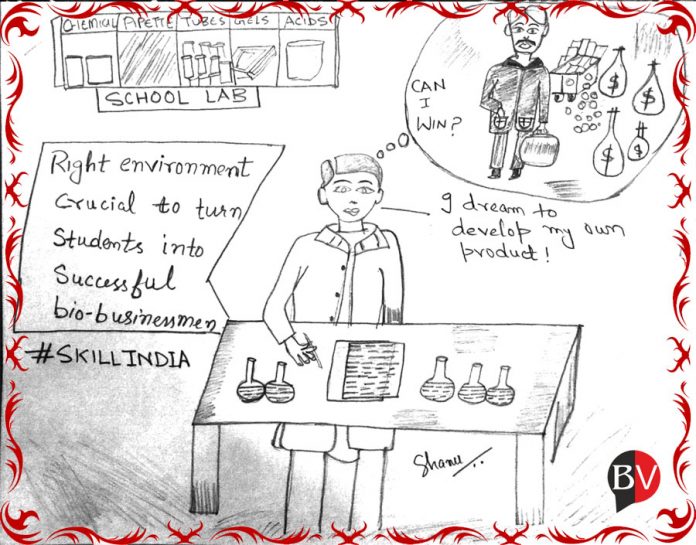 CHEMICAL PIPETTE TUBES GELS ACIDS
SCHOOL LAB
CAN
I
WIN?
$ $
$ $
I dream to
develop my own
product!
Right environment
Crucial to turn
Students into
Successful
bio-businessmen
#SKILLINDIA
Shanu
BV